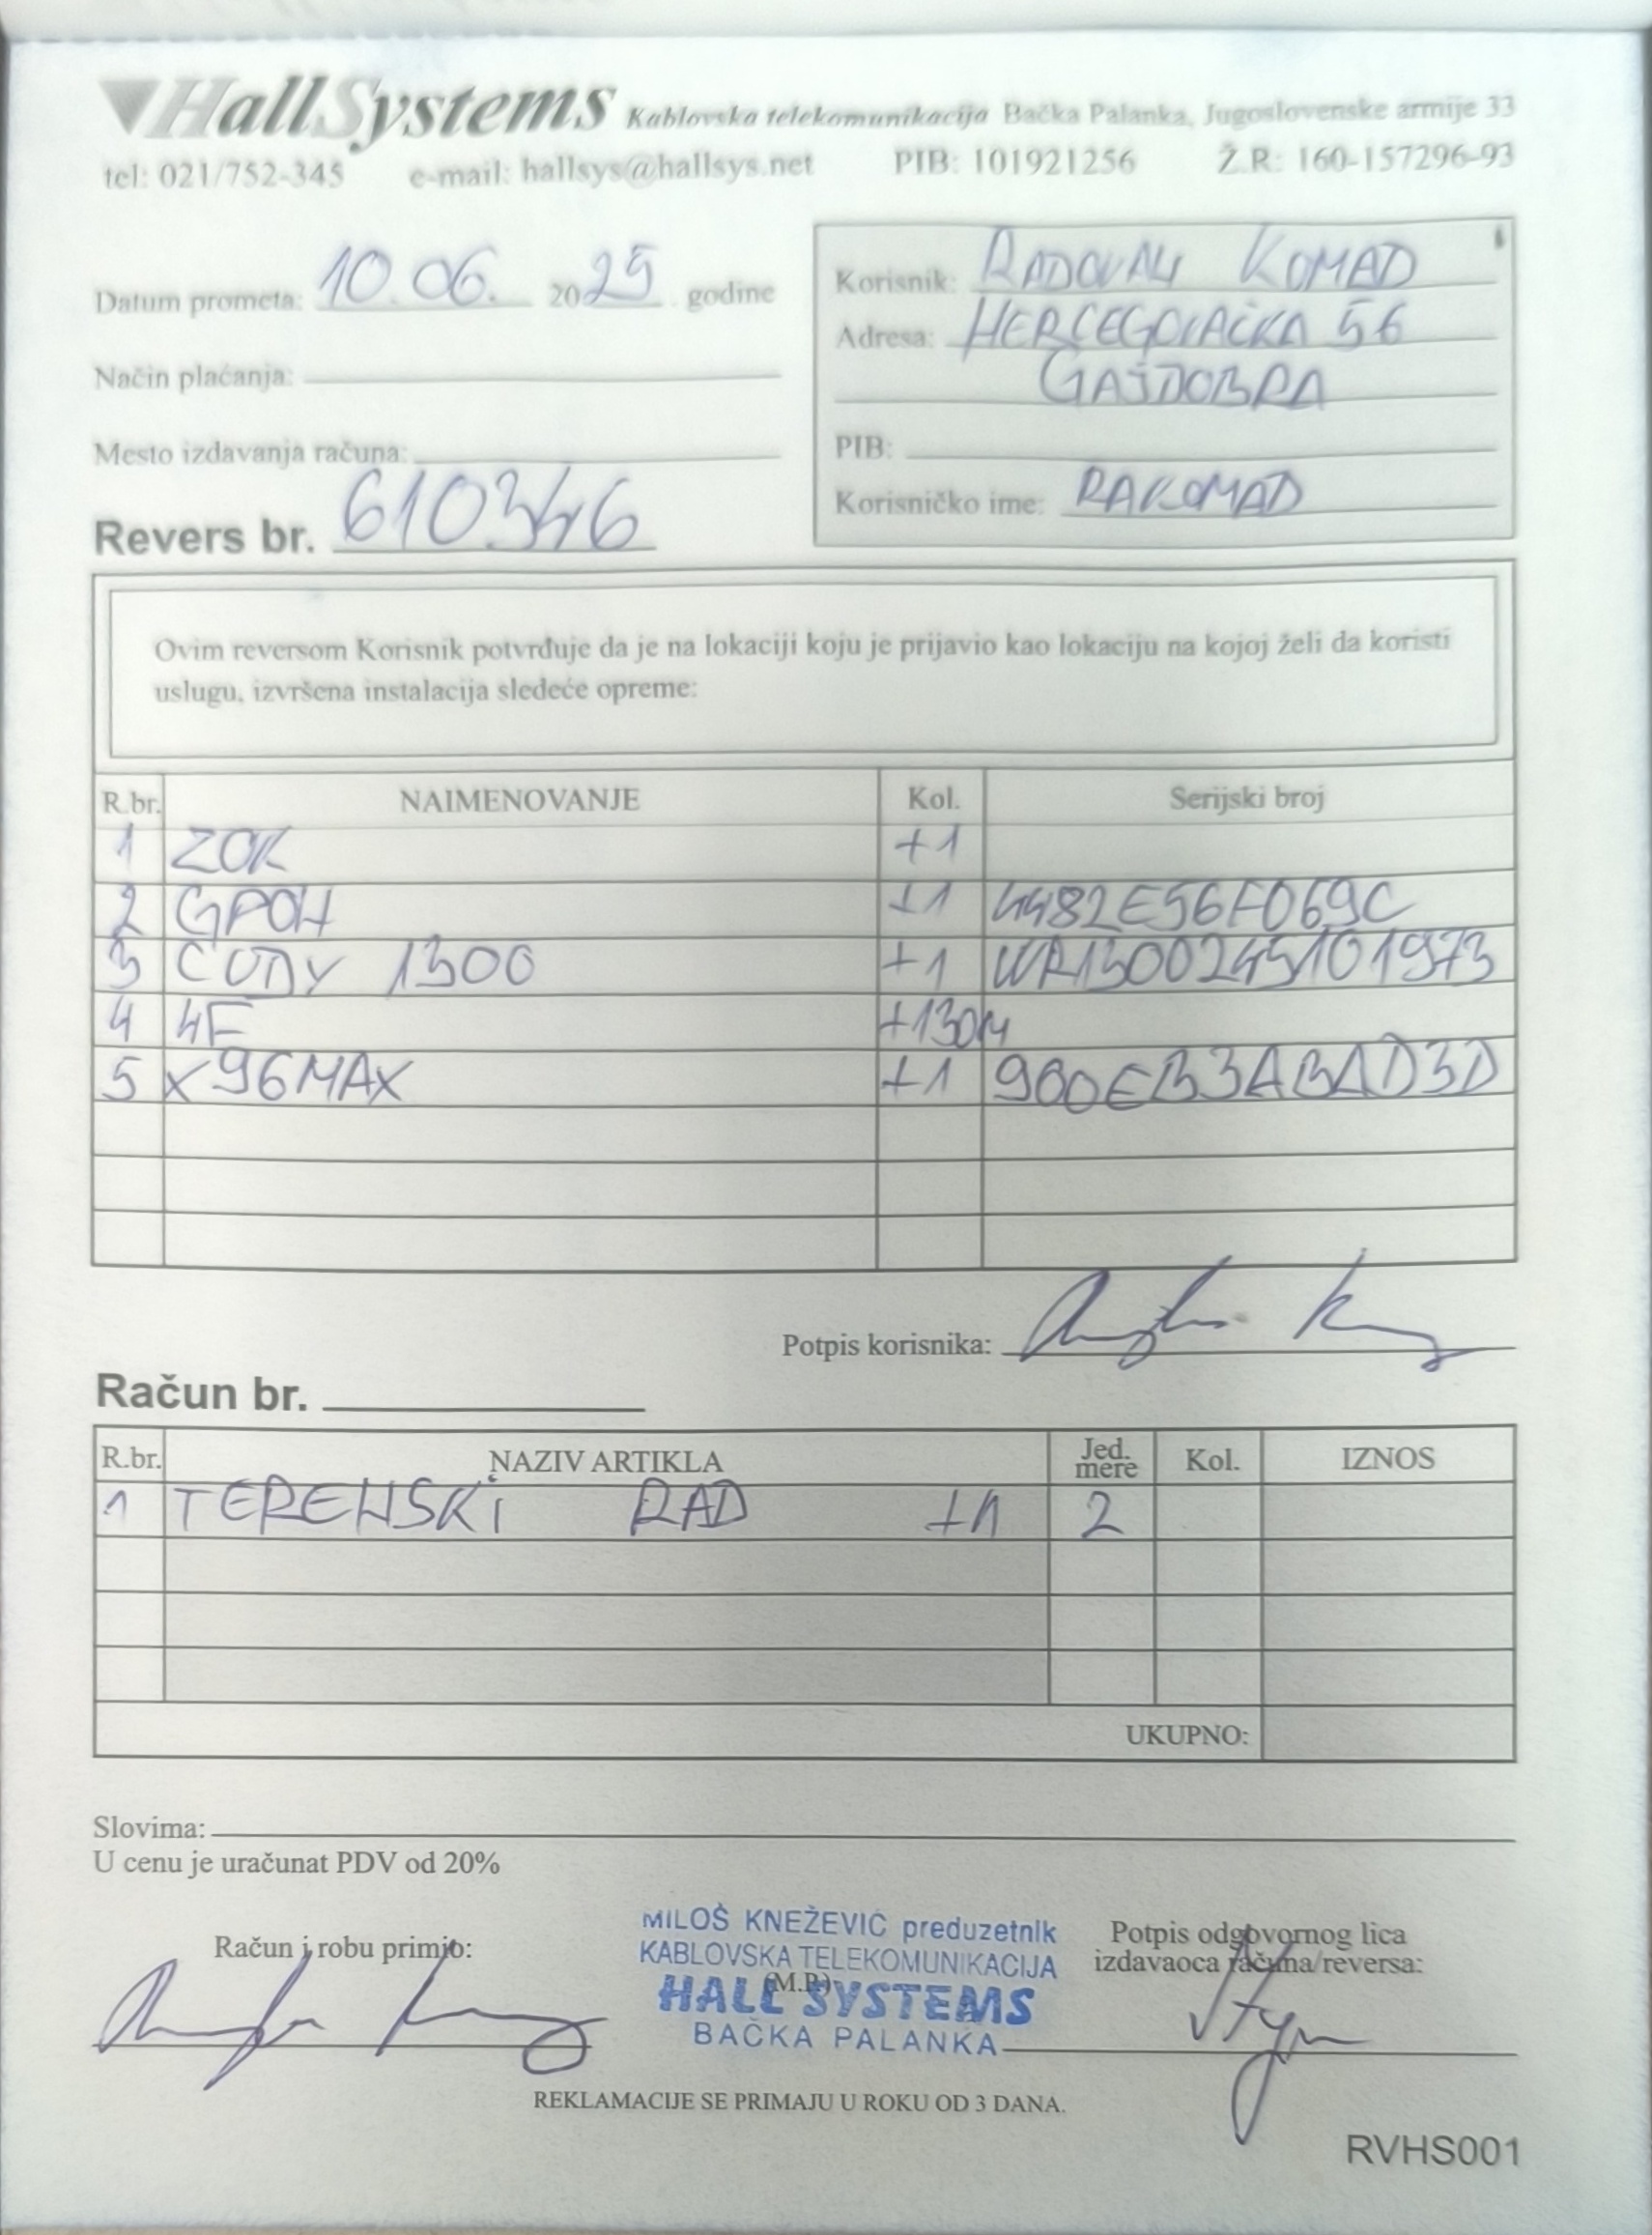 HallSystems Kablovska telekomunikacija Bačka Palanka, Jugoslovenske armije 33
tel: 021/752-345 e-mail: hallsys@hallsys.net PIB: 101921256 Ž.R: 160-157296-93
Datum prometa: 10.06. 2025 godine
Način plaćanja:
Mesto izdavanja računa:
Revers br. 610346
Korisnik: RADOVAN KOMAD
Adresa: HERCEGOVAČKA 56
GAJDOBRA
PIB:
Korisničko ime: RAKOMAD
Ovim reversom Korisnik potvrđuje da je na lokaciji koju je prijavio kao lokaciju na kojoj želi da koristi
uslugu, izvršena instalacija sledeće opreme:
R.br. NAIMENOVANJE Kol. Serijski broj
1 ZOK +1
2 GPON +1 4482E56F069C
3 CUDY 1300 +1 WR1300245101973
4 4F +130M
5 X96MAX +1 900EB3ABAD3D
Potpis korisnika:
Račun br.
R.br. NAZIV ARTIKLA Jed. mere Kol. IZNOS
1 TERENSKI RAD +1 2
UKUPNO:
Slovima:
U cenu je uračunat PDV od 20%
Račun i robu primio:
MILOŠ KNEŽEVIĆ preduzetnik
KABLOVSKA TELEKOMUNIKACIJA
(M.P.)
HALL SYSTEMS
BAČKA PALANKA
Potpis odgovornog lica
izdavaoca računa/reversa:
REKLAMACIJE SE PRIMAJU U ROKU OD 3 DANA.
RVHS001